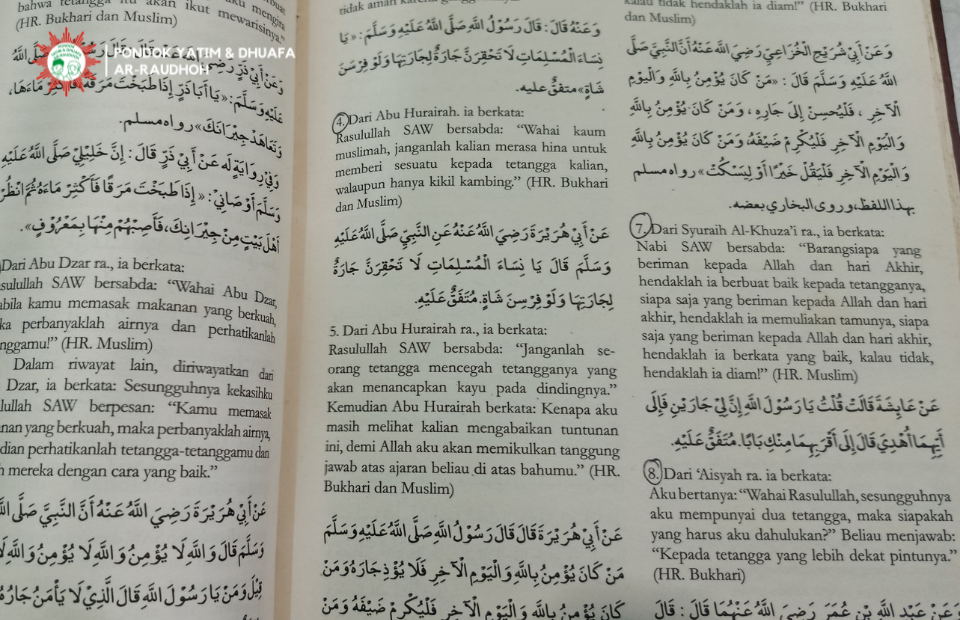 PONDOK YATIM & DHUAFA
AR-RAUDHOH
bahwa tetangga itu akan ikut mewarisinya."
(HR. Bukhari dan Muslim)
عَلَيْهِ وَسَلَّمَ: «يَا أَبَا ذَرٍّ إِذَا طَبَخْتَ مَرَقَةً فَأَكْثِرْ مَاءَهَا،
وَتَعَاهَدْ جِيْرَانَكَ» رواه مسلم.
وَفِيْ رِوَايَةٍ لَه عَنْ أَبِيْ ذَرٍّ قَالَ: إِنَّ خَلِيْلِيْ صَلَّى اللَّهُ عَلَيْهِ
وَسَلَّمَ أَوْصَانِيْ: «إِذَا طَبَخْتَ مَرَقًا فَأَكْثِرْ مَاءَهُ ثُمَّ انْظُرْ
أَهْلَ بَيْتٍ مِنْ جِيْرَانِكَ، فَأَصِبْهُمْ مِنْهَا بِمَعْرُوْفٍ».
Dari Abu Dzar ra., ia berkata:
SAW bersabda: "Wahai Abu Dzar,
kamu memasak makanan yang berkuah,
perbanyaklah airnya dan perhatikanlah
(HR. Muslim)
Dalam riwayat lain, diriwayatkan dari
Dzar, ia berkata: Sesungguhnya kekasihku
SAW berpesan: "Kamu memasak
yang berkuah, maka perbanyaklah airnya,
perhatikanlah tetangga-tetanggamu dan
mereka dengan cara yang baik."
عَنْ أَبِيْ هُرَيْرَةَ رَضِيَ اللَّهُ عَنْهُ أَنَّ النَّبِيَّ صَلَّى
وَسَلَّمَ قَالَ وَاللَّهِ لَا يُؤْمِنُ وَاللَّهِ لَا يُؤْمِنُ وَاللَّهِ
قِيْلَ وَمَنْ يَا رَسُوْلَ اللَّهِ قَالَ الَّذِيْ لَا يَأْمَنُ جَارُهُ
وَعَنْهُ قَالَ: قَالَ رَسُوْلُ اللَّهِ صَلَّى اللَّهُ عَلَيْهِ وَسَلَّمَ: «يَا
نِسَاءَ الْمُسْلِمَاتِ لَا تَحْقِرَنَّ جَارَةٌ لِجَارَتِهَا وَلَوْ فِرْسَنَ
شَاةٍ» متفق عليه.
4. Dari Abu Hurairah. ia berkata:
Rasulullah SAW bersabda: "Wahai kaum
muslimah, janganlah kalian merasa hina untuk
memberi sesuatu kepada tetangga kalian,
walaupun hanya kikil kambing." (HR. Bukhari
dan Muslim)
عَنْ أَبِيْ هُرَيْرَةَ رَضِيَ اللَّهُ عَنْهُ عَنِ النَّبِيِّ صَلَّى اللَّهُ عَلَيْهِ
وَسَلَّمَ قَالَ يَا نِسَاءَ الْمُسْلِمَاتِ لَا تَحْقِرَنَّ جَارَةٌ
لِجَارَتِهَا وَلَوْ فِرْسِنَ شَاةٍ. مُتَّفَقٌ عَلَيْهِ.
5. Dari Abu Hurairah ra., ia berkata:
Rasulullah SAW bersabda: "Janganlah se-
orang tetangga mencegah tetangganya yang
akan menancapkan kayu pada dindingnya."
Kemudian Abu Hurairah berkata: Kenapa aku
masih melihat kalian mengabaikan tuntunan
ini, demi Allah aku akan memikulkan tanggung
jawab atas ajaran beliau di atas bahumu." (HR.
Bukhari dan Muslim)
عَنْ أَبِيْ هُرَيْرَةَ قَالَ قَالَ رَسُوْلُ اللَّهِ صَلَّى اللَّهُ عَلَيْهِ وَسَلَّمَ
مَنْ كَانَ يُؤْمِنُ بِاللَّهِ وَالْيَوْمِ الْآخِرِ فَلَا يُؤْذِ جَارَهُ وَمَنْ
كَانَ يُؤْمِنُ بِاللَّهِ وَالْيَوْمِ الْآخِرِ فَلْيُكْرِمْ ضَيْفَهُ وَمَنْ
kalau tidak hendaklah ia diam!" (HR. Bukhari
dan Muslim)
وَعَنْ أَبِيْ شُرَيْحٍ الْخُزَاعِيِّ رَضِيَ اللَّهُ عَنْهُ أَنَّ النَّبِيَّ صَلَّى
اللَّهُ عَلَيْهِ وَسَلَّمَ قَالَ: «مَنْ كَانَ يُؤْمِنُ بِاللَّهِ وَالْيَوْمِ
الْآخِرِ، فَلْيُحْسِنْ إِلَى جَارِهِ، وَمَنْ كَانَ يُؤْمِنُ بِاللَّهِ
وَالْيَوْمِ الْآخِرِ فَلْيُكْرِمْ ضَيْفَهُ، وَمَنْ كَانَ يُؤْمِنُ بِاللَّهِ
وَالْيَوْمِ الْآخِرِ فَلْيَقُلْ خَيْرًا أَوْ لِيَسْكُتْ» رواه مسلم
بهذا اللفظ، وروى البخاري بعضه.
7. Dari Syuraih Al-Khuza'i ra., ia berkata:
Nabi SAW bersabda: "Barangsiapa yang
beriman kepada Allah dan hari Akhir,
hendaklah ia berbuat baik kepada tetangganya,
siapa saja yang beriman kepada Allah dan hari
akhir, hendaklah ia memuliakan tamunya, siapa
saja yang beriman kepada Allah dan hari akhir,
hendaklah ia berkata yang baik, kalau tidak,
hendaklah ia diam!" (HR. Muslim)
عَنْ عَائِشَةَ قَالَتْ قُلْتُ يَا رَسُوْلَ اللَّهِ إِنَّ لِيْ جَارَيْنِ فَإِلَى
أَيِّهِمَا أُهْدِيْ قَالَ إِلَى أَقْرَبِهِمَا مِنْكِ بَابًا. مُتَّفَقٌ عَلَيْهِ.
8. Dari 'Aisyah ra. ia berkata:
Aku bertanya: "Wahai Rasulullah, sesungguhnya
aku mempunyai dua tetangga, maka siapakah
yang harus aku dahulukan?" Beliau menjawab:
"Kepada tetangga yang lebih dekat pintunya."
(HR. Bukhari)
وَعَنْ عَبْدِ اللَّهِ بْنِ عُمَرَ رَضِيَ اللَّهُ عَنْهُمَا قَالَ: قَالَ